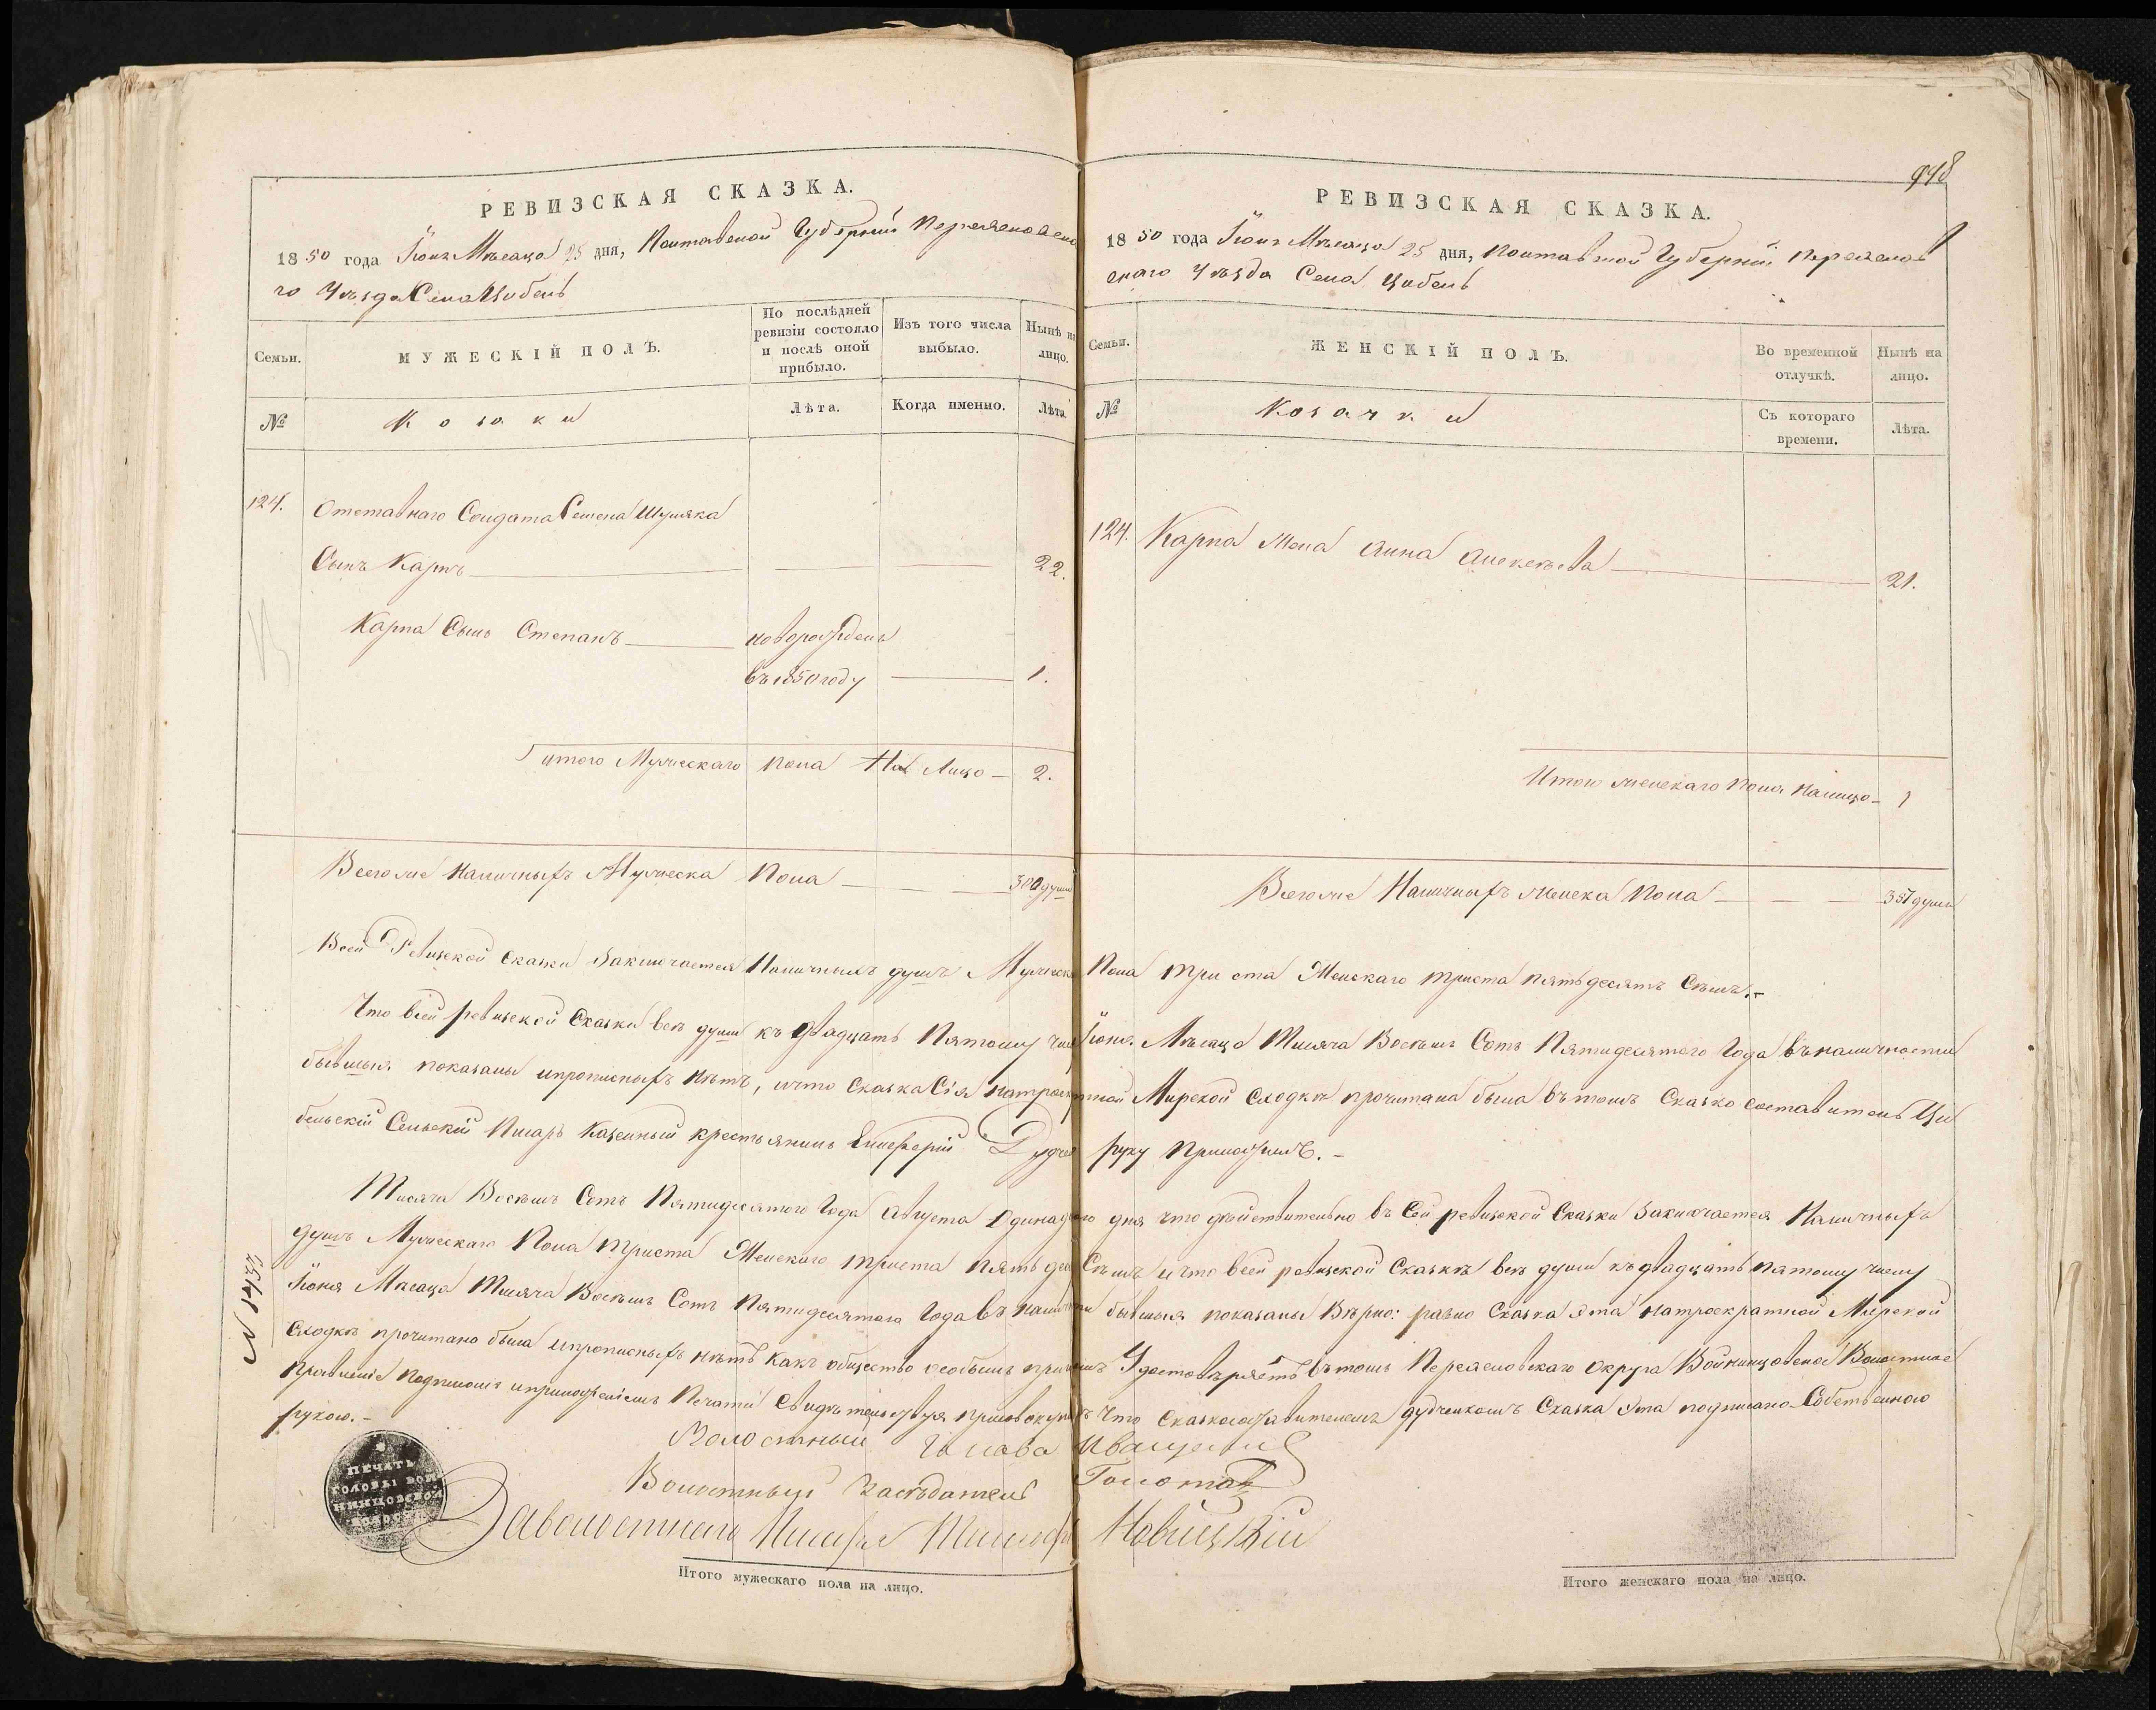 РЕВИЗСКАЯ СКАЗКА.
1850 года Іюня Мѣсяца 25 дня, Полтавской Губерніи Переяславска
го Уѣзда Села Цибель
Семьи.
МУЖЕСКІЙ ПОЛЪ.
По послѣдней ревизіи состояло и послѣ оной прибыло.
Изъ того числа выбыло.
Нынѣ на лицо.
№
Козаки
Лѣта.
Когда именно.
Лѣта.
124.
Отставнаго Солдата Семена Шуляка
Сынъ Карпъ 22.
Карпа Сынъ Степанъ новорожденъ
въ 1850 году 1.
Итого Мужескаго пола На Лицо 2.
Всего же Наличныхъ Мужеска Пола 300 душъ
948
РЕВИЗСКАЯ СКАЗКА.
1850 года Іюня Мѣсяца 25 дня, Полтавской Губерніи Переяслав
скаго Уѣзда Села Цибель
Семьи.
ЖЕНСКІЙ ПОЛЪ.
Во временной отлучкѣ.
Нынѣ на лицо.
№
Козачки
Съ котораго времени.
Лѣта.
124. Карпа Жена Анна Алексѣева 21.
Итого женскаго Пола Налицо 1
Всего же Наличныхъ женска Пола 357 душъ
Всей Ревизской Сказки Заключается Наличныхъ душъ Мужеска Пола три ста Женскаго триста пятьдесятъ Семь.
Что всей ревизской Сказки всѣ души къ двадцать Пятому числ Іюня Мѣсяца Тисяча Восемь Сотъ Пятидесятого Года въ наличности
бывшыя показаны ипрописныхъ нѣтъ, ичто Сказка Сія натроекратной Мирской Сходкѣ прочитана была вътомъ Сказко составитель Ци
бельскій Сельскій Писарь Казенный крестьянинъ Елиферій Дудч руку Приложилъ.
Тисяча Восемь Сотъ Пятидесятого Года Августа Одинадцаго дня что дѣйствительно въ Сей ревизской Сказки Заключается Наличныхъ
душъ Мужескаго Пола триста Женского триста пять дес Семь ичто всей ревизской Сказкѣ всѣ души къ двадцать пятому числу
Іюня Мѣсяца Тисяча Восемь Сотъ Пятидесятого Года въ наличности бывшыя показаны Вѣрно: равно Сказка эта натроекратной Мирской
Сходкѣ прочитано была ипрописныхъ нѣтъ какъ общество особымъ приг Удостовѣряетъ вътомъ Переяславскаго округа Войнинцовское Волостное
Правленіе Подписомъ иприложеніемъ Печати Свидѣтельствуя Что Сказкосоставителемъ дудченкомъ Сказка эта подписано Собственною
рукою.
N 1433
ПЕЧАТЬ
ГОЛОВЫ ВОЙ
НИНЦОВСКОЙ
ВОЛОС
Волостный Голова Иващенко
Волостный Засѣдатель Голота
За волостнаго Писаря Новицкій
Итого мужескаго пола на лицо.
Итого женскаго пола на лицо.